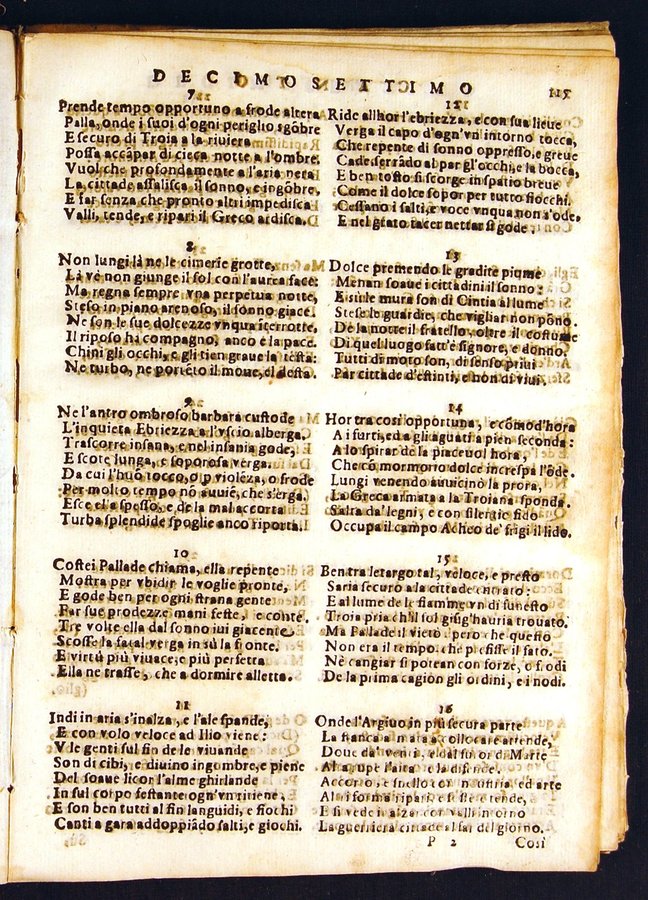 DECIMOSETTIMO
115
7
Prende tempo opportuno a frode altera
Palla, onde i suoi d'ogni periglio sgõbre
E securo di Troia a la riuiera
Possa accãpar di cieca notte a l'ombre.
Vuol che profondamente a l'aria nera
La cittade assalisca il sonno, e ingõbre.
E far senza che pronto altri impedisca
Valli, tende, e ripari il Greco ardisca.
8
Non lungi là ne le cimerie grotte,
Là ve non giunge il sol con l'aurea face:
Ma regna sempre vna perpetua notte,
Steso in piano arenoso, il sonno giace.
Ne son le sue dolcezze vnqua iterrotte.
Il riposo ha compagno, anco e la pace.
Chini gli occhi, e gli tien graue la testa:
Ne turbo, ne porteto il moue, el desta.
9
Ne l'antro ombroso barbara custode
L'inquieta Ebriezza a l'vscio alberga.
Trascorre insana, e nel insania gode,
E scote lunga, e soporosa verga.
Da cui l'huõ tocco, o p violẽza, o frode
Per molto tempo nõ auuiẽ, che s'erga.
Esce ella spesso, e de la mal accorta
Turba splendide spoglie anco riporta.
10
Costei Pallade chiama, ella repente
Mostra per vbidir le voglie pronte,
E gode ben per ogni strana gente
Far sue prodezze mani feste, e conte.
Tre volte ella dal sonno iui giacente
Scosse la fatal verga in sù la fronte.
E virtù più viuace, e più perfetta
Ella ne trasse, che a dormire alletta.
11
Indi in aria s'inalza, e l'ale spande,
E con volo veloce ad Ilio viene:
V le genti sul fin de le viuande
Son di cibi, e diuino ingombre, e piene
Del soaue licor l'alme ghirlande
In sul corpo festante ogn'vn ritiene,
E son ben tutti al fin languidi, e fiochi
Canti a gara addoppiãdo salti, e giochi.
12
Ride allhor l'ebriezza, e con sua lieue
Verga il capo d'ogn'vn intorno tocca,
Che repente di sonno oppresso, e greue
Cade, serrãdo al par gl'occhi, e la bocca,
E ben tosto si scorge in spatio breue
Come il dolce sopor per tutto fiocchi.
Cessano i salti, e voce vnqua non s'ode,
E nel grato tacer nettar si gode;
13
Dolce premendo le gradite piume
Menan soaue i cittadini il sonno:
E sù le mura son di Cintia al lume
Stese le guardie, che vigliar non põno.
De la notte il fratello, oltre il costume
Di quel luogo fatt'è signore, e donno.
Tutti di moto son, di senso priui
Par cittade d'estinti, e non di viui.
14
Hor tra cosi opportuna, e cõmod'hora
A i furti, ed a gli aguati a pien seconda:
A lo spirar de la piaceuol hora,
Che cõ mormorio dolce increspa l'õde.
Lungi venendo auuicinò la prora,
La Greca armata a la Troiana sponda.
Salta da' legni, e con silentio fido
Occupa il campo Acheo de' frigi il lido.
15
Ben tra letargo tal, veloce, e presto
Saria securo a la cittade entrato:
E al lume de le fiamme vn di funesto
Troia pria ch'il sol giũg'hauria trouato.
Ma Pallade il vietò, pero che questo
Non era il tempo, che prefisse il fato.
Nè cangiar si potean con forze, o frodi
De la prima cagion gli ordini, e i nodi.
16
Onde l'Argiuo in più secura parte
La stanca armata a collocare attende,
Doue da' venti, e dal furor di Marte
Accorto, e snello con industria, ed arte
E si vede inalzar con valli intorno
La guerriera cittade al far del giorno.
P 2
Così